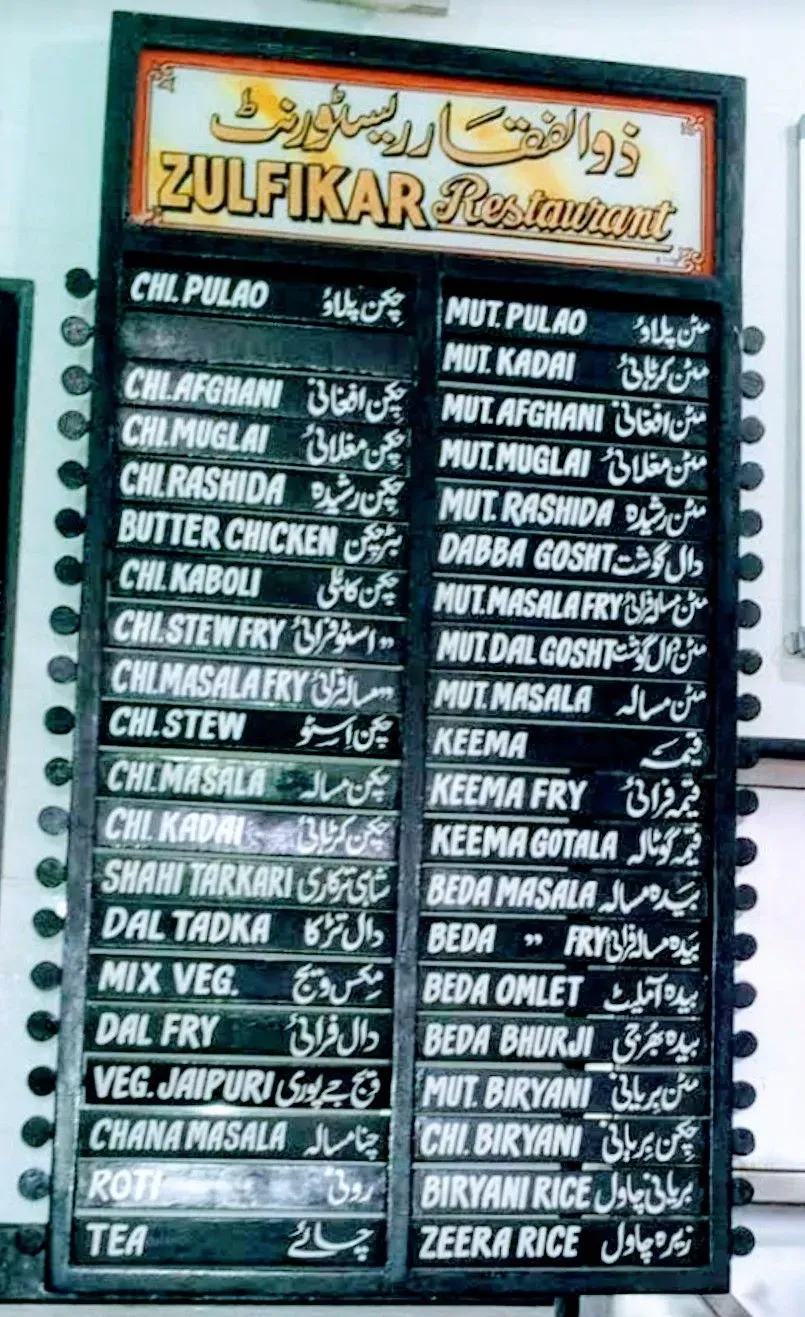 ذوالفقار ریسٹورنٹ
ZULFIKAR Restaurant
CHI. PULAO چکن پلاؤ
CHI. AFGHANI چکن افغانی
CHI. MUGLAI چکن مغلائی
CHI. RASHIDA چکن رشیدہ
BUTTER CHICKEN بٹر چکن
CHI. KABOLI چکن کابلی
CHI. STEW FRY " اسٹو فرائی
CHI. MASALA FRY " مسالہ فرائی
CHI. STEW چکن اِسٹو
CHI. MASALA چکن مسالہ
CHI. KADAI چکن کڑہائی
SHAHI TARKARI شاہی ترکاری
DAL TADKA دال تڑکا
MIX VEG. مِکس ویج
DAL FRY دال فرائی
VEG. JAIPURI ویج جے پوری
CHANA MASALA چنا مسالہ
ROTI روٹی
TEA چائے
MUT. PULAO مٹن پلاؤ
MUT. KADAI مٹن کڑہائی
MUT. AFGHANI مٹن افغانی
MUT. MUGLAI مٹن مغلائی
MUT. RASHIDA مٹن رشیدہ
DABBA GOSHT دال گوشت
MUT. MASALA FRY مٹن مسالہ فرائی
MUT. DAL GOSHT مٹن دال گوشت
MUT. MASALA مٹن مسالہ
KEEMA قیمہ
KEEMA FRY قیمہ فرائی
KEEMA GOTALA قیمہ گوٹالہ
BEDA MASALA بیدہ مسالہ
BEDA " FRY بیدہ مسالہ فرائی
BEDA OMLET بیدہ آملیٹ
BEDA BHURJI بیدہ بھُرجی
MUT. BIRYANI مٹن بریانی
CHI. BIRYANI چکن بریانی
BIRYANI RICE بریانی چاول
ZEERA RICE زیرہ چاول